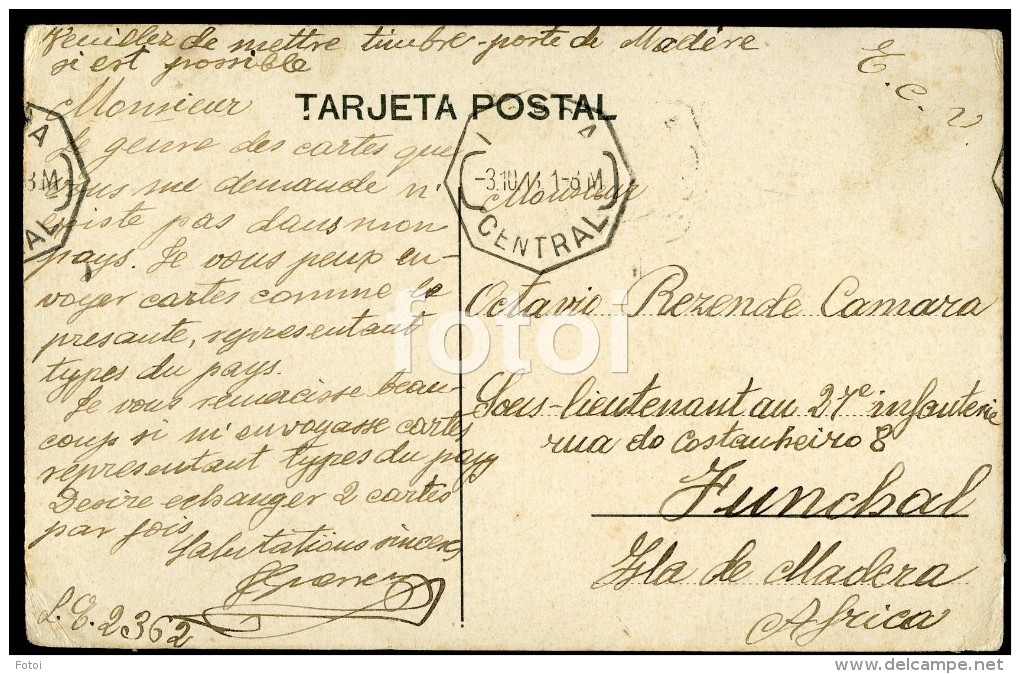 Veuillez de mettre timbre-porte de Madère
si est possible
E. C. V
TARJETA POSTAL
Monsieur
Le genre des cartes que
vous me demande n'
existe pas dans mon
pays. Je vous peux en-
voyer cartes comme le
presante, representant
types du pays.
Je vous remercisse beau-
coup si m'envoyasse cartes
representant types du pays
Desire echanger 2 cartes
par fois
Salutations sinceres
L. E. 2362
CENTRAL
Monsieur
Octavio Rezende Camara
Sous-lieutenant au 27e infanterie
rua do Castanheiro 8
Funchal
Isla de Madera
Africa
fotoi
Fotoi
http://fotoi.delcampe.net